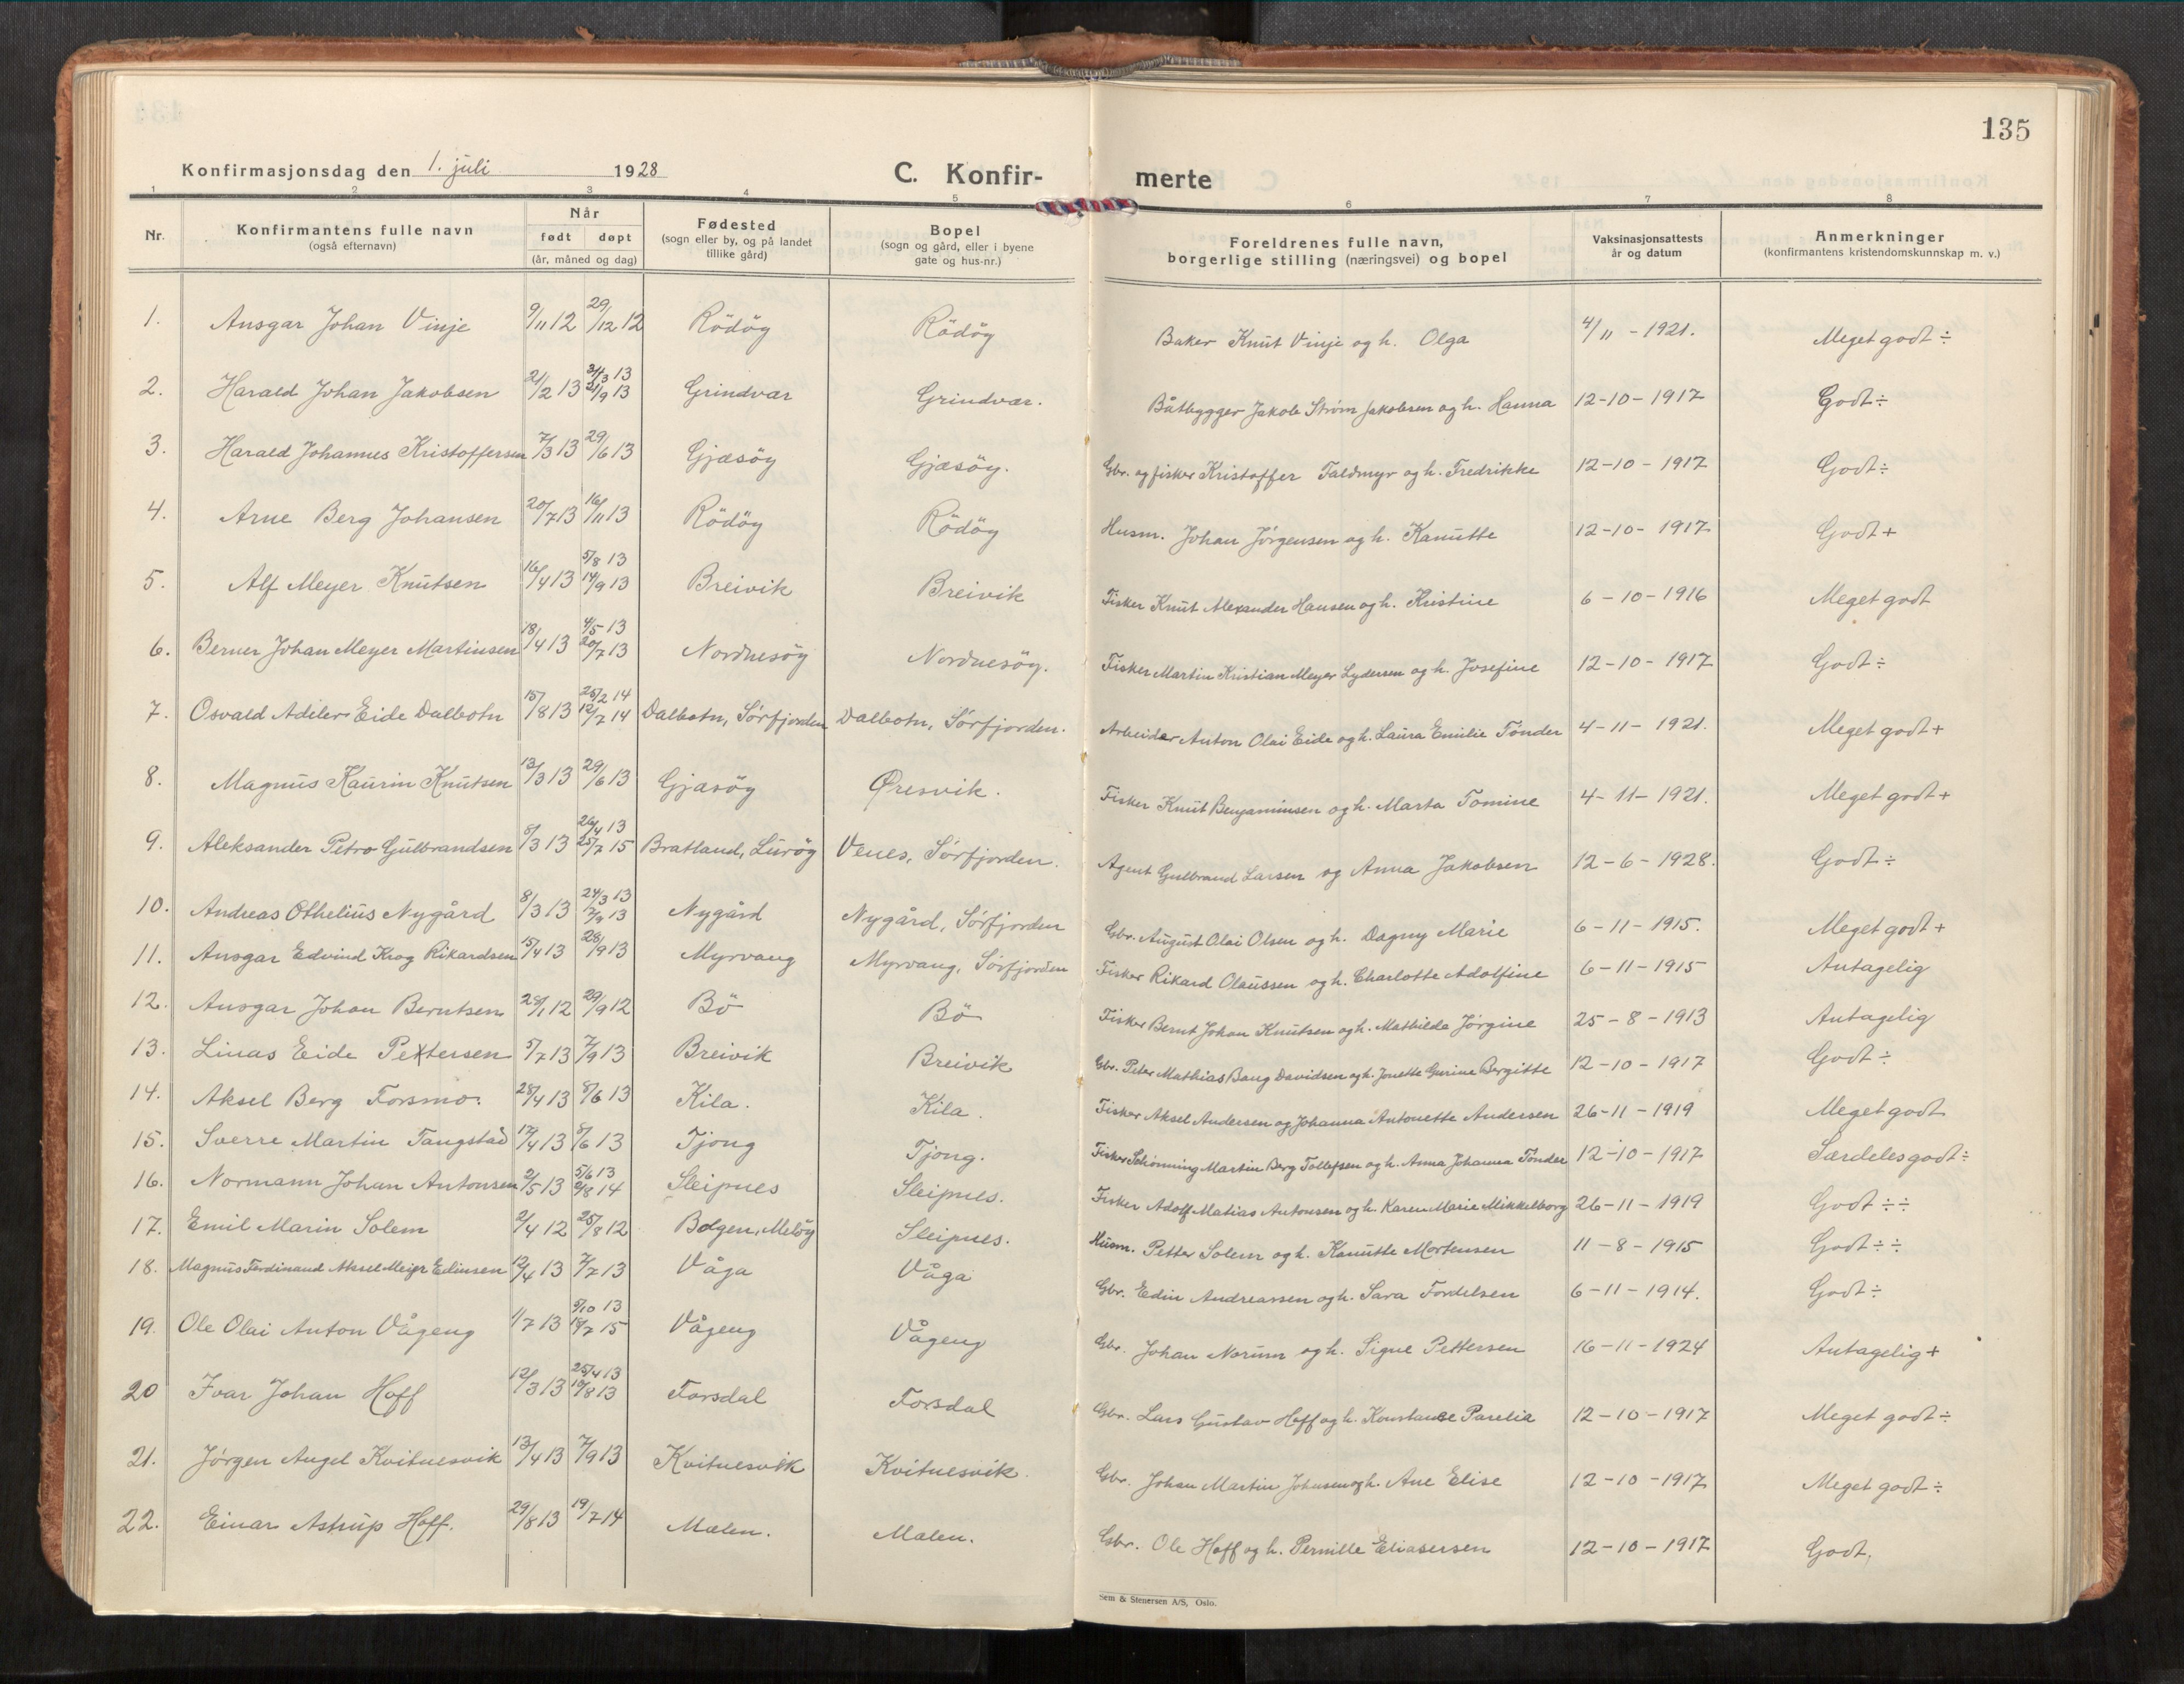 135
Konfirmasjonsdag den 1. juli 1928 C. Konfir- merte
1 2 3 4 5 6 7 8
Nr. Konfirmantens fulle navn (også efternavn) Når født døpt (år, måned og dag) Fødested (sogn eller by, og på landet tillike gård) Bopel (sogn og gård, eller i byene gate og hus-nr.) Foreldrenes fulle navn, borgerlige stilling (næringsvei) og bopel Vaksinasjonsattests år og datum Anmerkninger (konfirmantens kristendomskunnskap m. v.)
1. Ansgar Johan Vinje 9/11 12 29/12 12 Rödöy Rödöy Baker Knut Vinje og h. Olga 4/11 - 1921. Meget godt ÷
2. Harald Johan Jakobsen 21/2 13 24/3 13 21/9 13 Grindvær Grindvær. Båtbygger Jakob Strøm Jakobsen og h. Hanna 12-10-1917 Godt ÷
3. Harald Johannes Kristoffersen 7/3 13 29/6 13 Gjæsöy Gjæsöy. Gbr. og fisker Kristoffer Faldmyr og h. Fredrikke 12-10-1917 Godt ÷
4. Arne Berg Johansen 20/7 13 16/11 13 Rödöy Rödöy Husm. Johan Jørgensen og h. Kanutte 12-10-1917 Godt +
5. Alf Meyer Knutsen 16/4 13 5/8 13 14/9 13 Breivik Breivik Fisker Knut Alexander Hansen og h. Kristine 6-10-1916 Meget godt
6. Berner Johan Meyer Martinsen 18/4 13 4/5 13 20/7 13 Nordnesöy Nordnesöy. Fisker Martin Kristian Meyer Lydersen og h. Josefine 12-10-1917 Godt ÷
7. Osvald Adiler Eide Dalbotn 15/8 13 25/2 14 12/7 14 Dalbotn, Sörfjorden Dalbotn, Sörfjorden. Arbeider Anton Olai Eide og h. Laura Emilie Tønder 4-11-1921. Meget godt +
8. Magnus Kaurin Knutsen 13/3 13 29/6 13 Gjæsöy Øresvik. Fisker Knut Benjaminsen og h. Marta Tomine 4-11-1921. Meget godt +
9. Aleksander Petro Gulbrandsen 8/3 13 26/4 13 25/7 15 Bratland, Luröy Venes, Sörfjorden. Agent Gulbrand Larsen og Anna Jakobsen 12-6-1928. Godt ÷
10. Andreas Othelius Nygård 8/3 13 24/3 13 7/9 13 Nygård Nygård, Sörfjorden Gbr. August Olai Olsen og h. Dagny Marie 6-11-1915. Meget godt +
11. Ansgar Edvind Krog Rikardsen 15/4 13 28/9 13 Myrvang Myrvang, Sörfjorden Fisker Rikard Olaussen og h. Charlotte Adolfine 6-11-1915 Antagelig
12. Ansgar Johan Berntsen 28/1 12 29/9 12 Bö Bö Fisker Bernt Johan Knutsen og h. Mathilde Jørgine 25-8-1913 Antagelig
13. Linas Eide Pettersen 5/7 13 7/9 13 Breivik Breivik Gbr. Peter Mathias Bang Davidsen og h. Jonette Gurine Bergitte 12-10-1917 Godt ÷
14. Aksel Berg Forsmo. 28/4 13 8/6 13 Kila. Kila. Fisker Aksel Andersen og Johanna Antonette Andersen 26-11-1919 Meget godt
15. Sverre Martin Tangstad 17/4 13 8/6 13 Tjong Tjong. Fisker Schönning Martin Berg Tollefsen og h. Anna Johanna Tønder 12-10-1917 Særdeles godt ÷
16. Normann Johan Antonsen 2/5 13 5/6 13 2/8 14 Sleipnes Sleipnes. Fisker Adolf Matias Antonsen og h. Karen Marie Mikkelborg 26-11-1919 Godt ÷÷
17. Emil Marin Solem 2/4 12 25/8 12 Bolgen, Melöy Sleipnes. Husm. Petter Solem og h. Kanutte Mortensen 11-8-1915 Godt ÷÷
18. Magnus Ferdinand Aksel Meyer Edinsen 12/4 13 7/7 13 Våga Våga Gbr. Edin Andreassen og h. Sara Fordelsen 6-11-1914. Godt ÷
19. Ole Olai Anton Vågeng 1/7 13 5/10 13 18/7 15 Vågeng Vågeng Gbr. Johan Norum og h. Signe Pettersen 16-11-1924 Antagelig +
20 Ivar Johan Hoff 12/3 13 25/4 13 10/8 13 Forsdal Forsdal Gbr. Lars Gustav Hoff og h. Konstanse Parelia 12-10-1917 Meget godt ÷
21. Jørgen Angel Kvitnesvik 13/4 13 7/9 13 Kvitnesvik Kvitnesvik. Gbr. Johan Martin Johnsen og h. Ane Elise 12-10-1917 Meget godt ÷
22. Einar Astrup Hoff. 29/8 13 19/7 14 Mælen. Mælen. Gbr. Ole Hoff og h. Pernille Eliasersen 12-10-1917 Godt.
Sem & Stenersen A/S, Oslo.